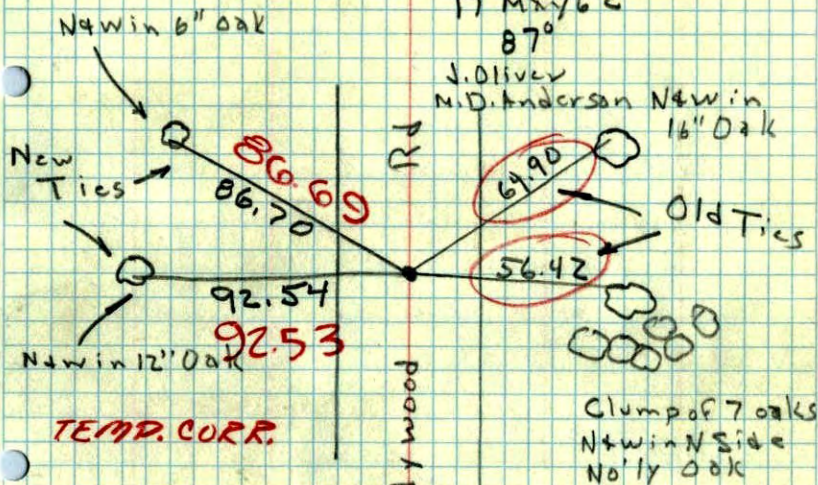 17 May 62
87°
J. Oliver
M.D. Anderson
N&W in 6" Oak
N&W in
16" Oak
New
Ties
Rd
86.69
86.70
64.90
Old Ties
56.42
92.54
92.53
N&W in 12" Oak
TEMP. CORR.
wood
Clump of 7 oaks
N&W in N Side
No'ly Oak